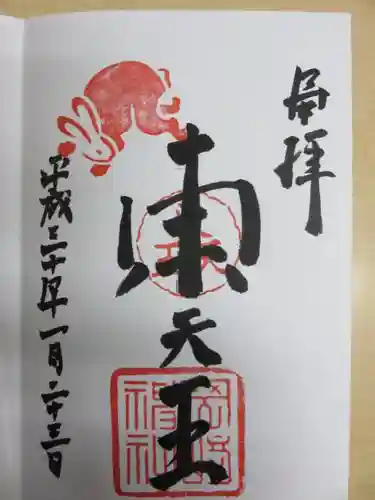 奉拝
東天王
岡崎
神社
平成三十年一月二十三日